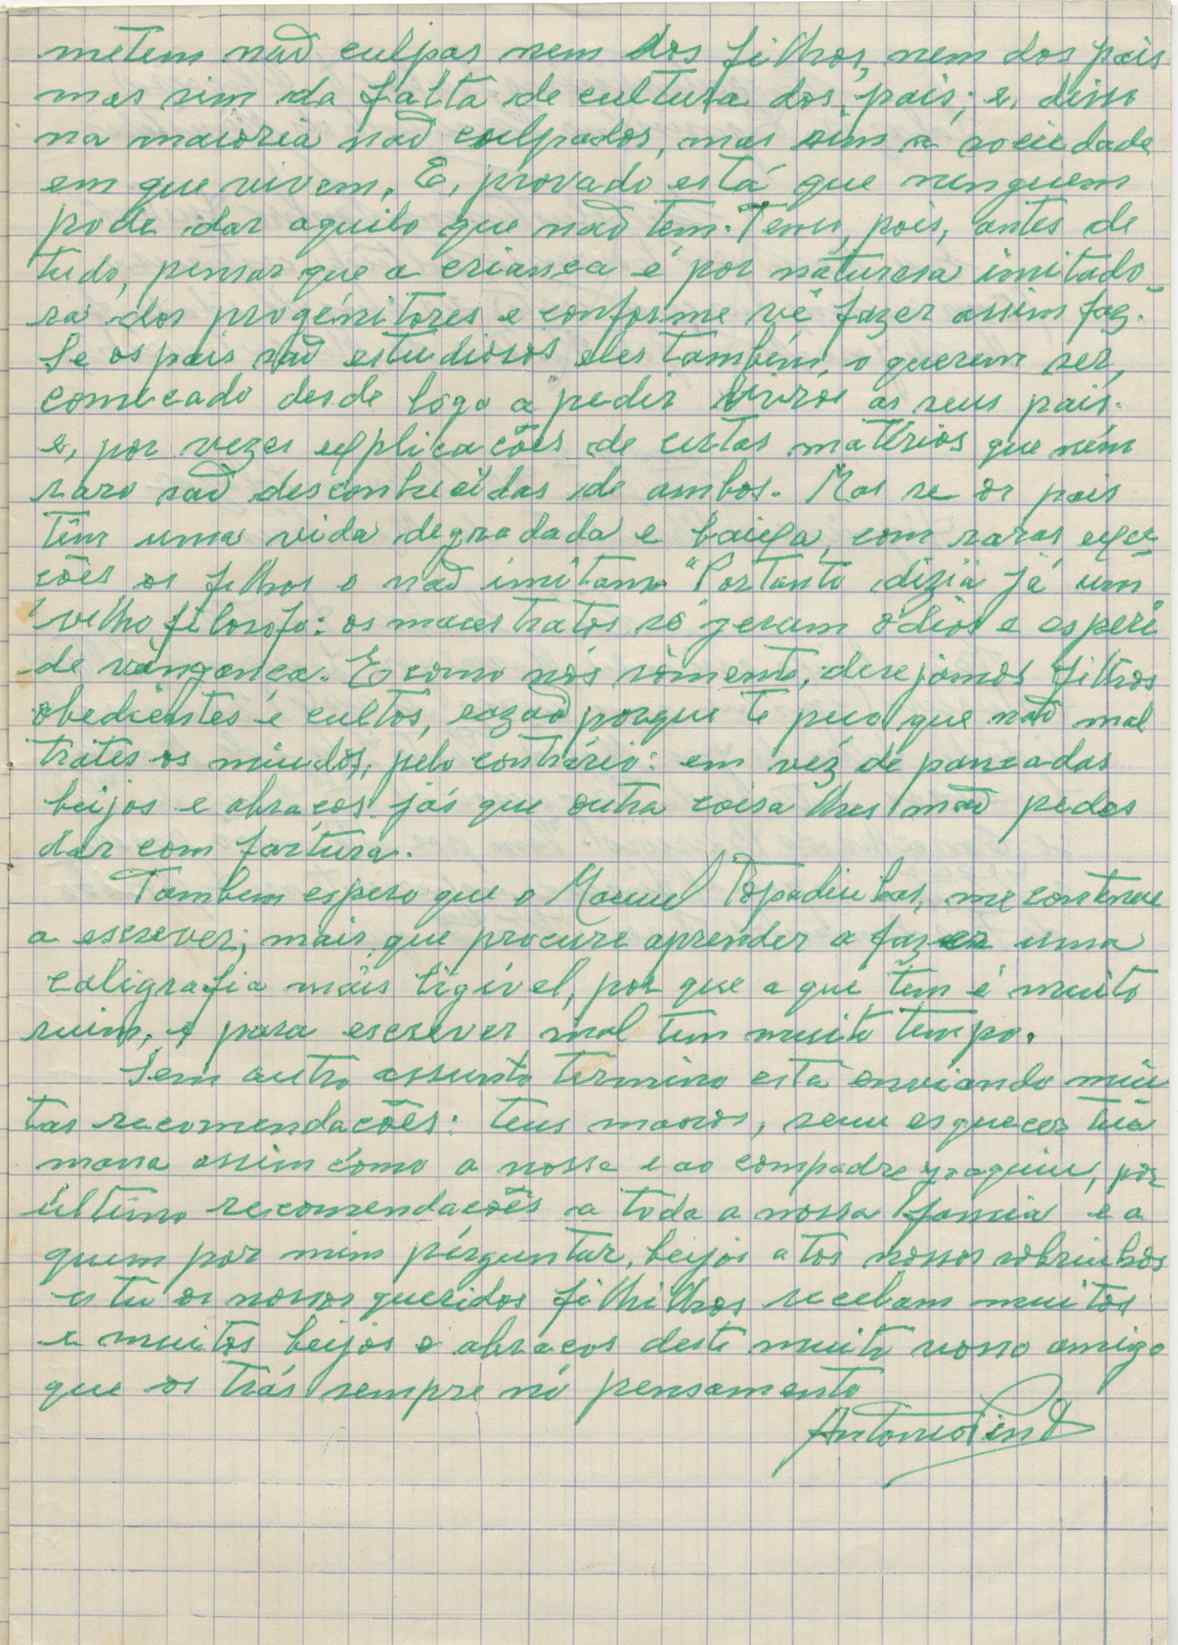 metem não culpas nem dos filhos, nem dos pais
mas sim da falta de cultura dos pais; e, disso
na maioria não culpados, mas sim a sociedade
em que vivem. E, provado está que ninguem
pode dar aquilo que não tem. Temos, pois, antes de
tudo, pensar que a criança é por naturesa imitado-
ra dos progénitores e conforme vê fazer assim faz.
Se os pais são estudiosos eles também, o querem ser,
comecado desde logo a pedir livros as seus pais.
e, por vezes explicações de certas matérios que nem
raro são desconhecidas de ambos. Mas se os pais
têm uma vida degradada e baixa, com raras exce
ções os filhos o não imitam. "Portanto dizia já um
velho filosofo: os maus tratos só geram ódios e esperi
de vingança. E como nós sómente, desejamos filhos
obedientes e cultos, razão porque te peço que não mal
trates os miúdos, pelo contrário: em vez de pancadas
beijos e abraços já que outra coisa lhes não podes
dar com fartura.
Tambem espero que o Manuel me continue
a escrever; mais, que procure aprender a fazer uma
caligrafia mais ligível, por que a que tem é muito
ruim, e para escrever mal tem muito tempo.
Sem outro assunto termino esta enviando mui
tas recomendações: teus manos, sem esquecer tua
mana assim como a nossa e ao compadre Joaquim, por
último recomendações a toda a nossa famia e a
quem por mim perguntar, beijos a tos nossos sobrinhos
e tu os nossos queridos filhilhos recebam muitos
e muitos beijos e abraços deste muito vosso amigo
que os trás sempre no pensamento
Antonio Pinto